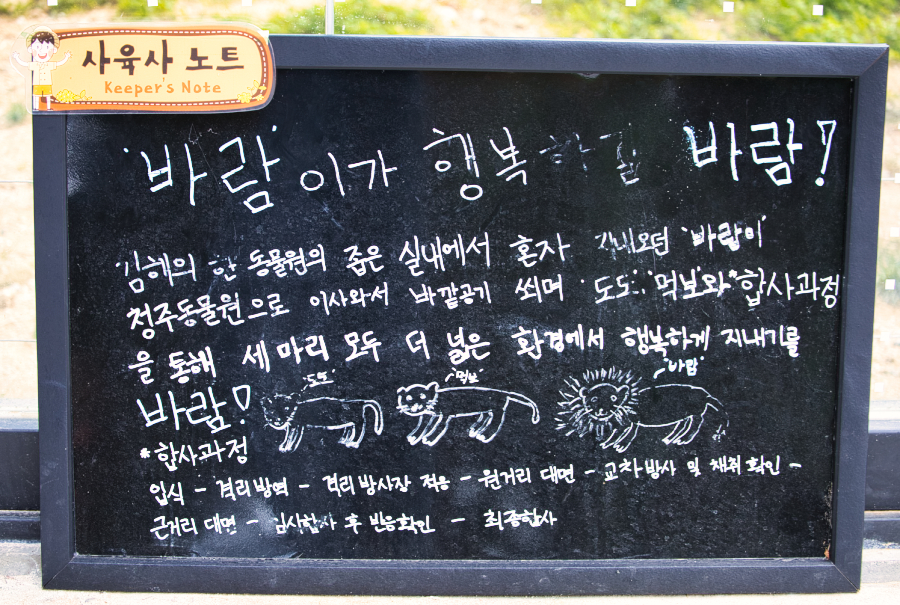 사육사 노트
Keeper's Note
'바람'이가 행복하길 바람!
김해의 한 동물원의 좁은 실내에서 혼자 지내오던 '바람이'
청주동물원으로 이사와서 바깥공기 쐬며 '도도', '먹보'와 *합사과정
을 통해 세 마리 모두 더 넓은 환경에서 행복하게 지내기를
바람!
'도도'
'먹보'
'바람'
*합사과정
입식 - 격리방역 - 격리방사장 적응 - 원거리 대면 - 교차방사 및 채취확인 -
근거리 대면 - 임시합사 후 반응확인 - 최종합사